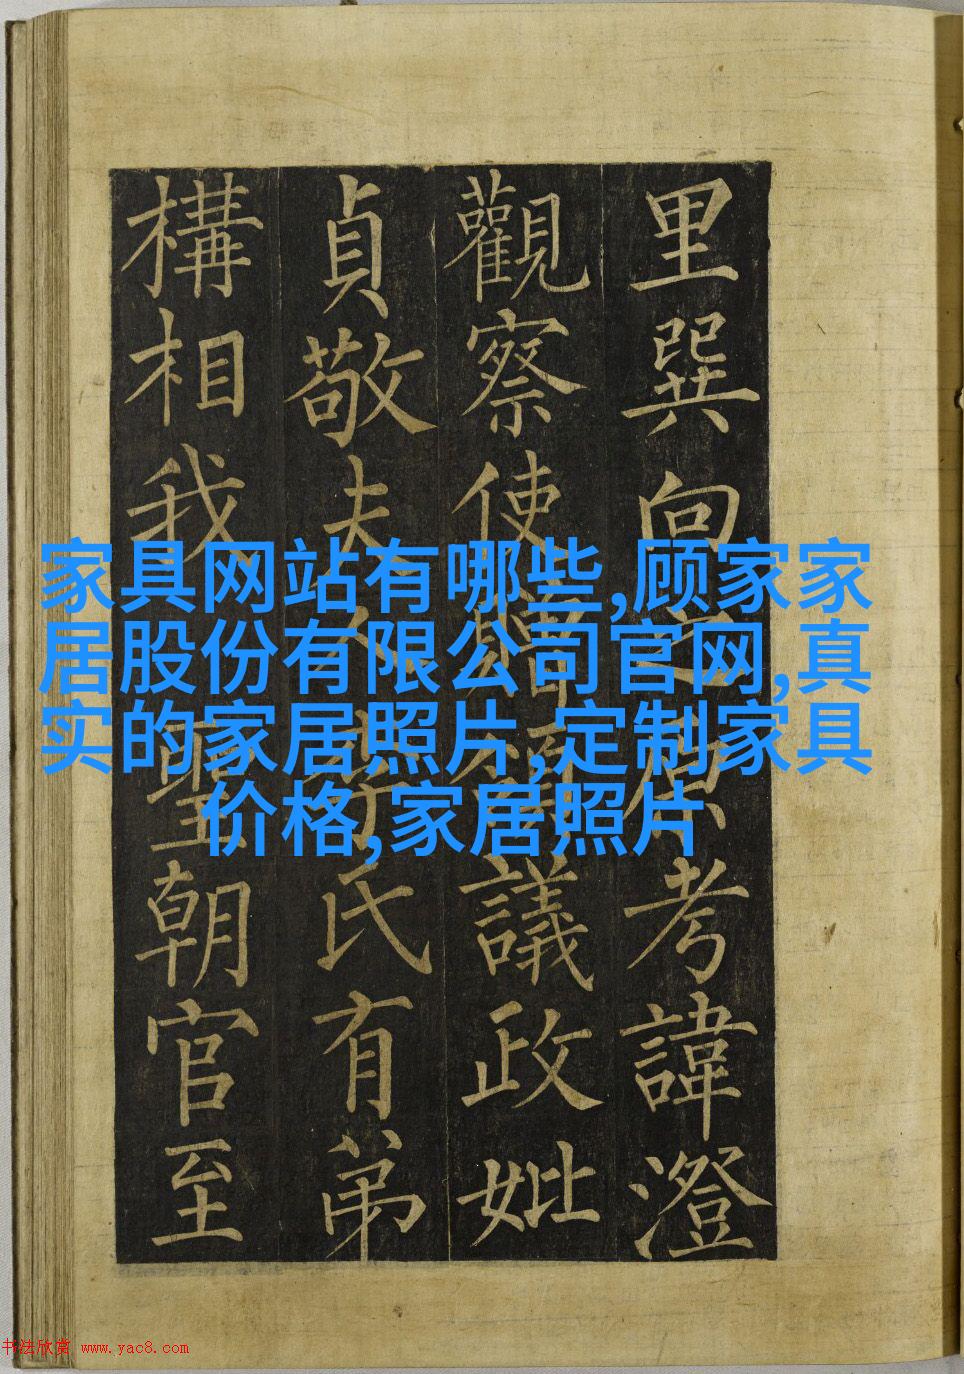 里巽向之原考諱澄
觀察使贈議政妣
貞敬夫人氏有弟
構相我聖朝官至
家具网站有哪些,顾家家
居股份有限公司官网,真
实的家居照片,定制家具
价格,家居照片
书法欣赏 www.yac8.com